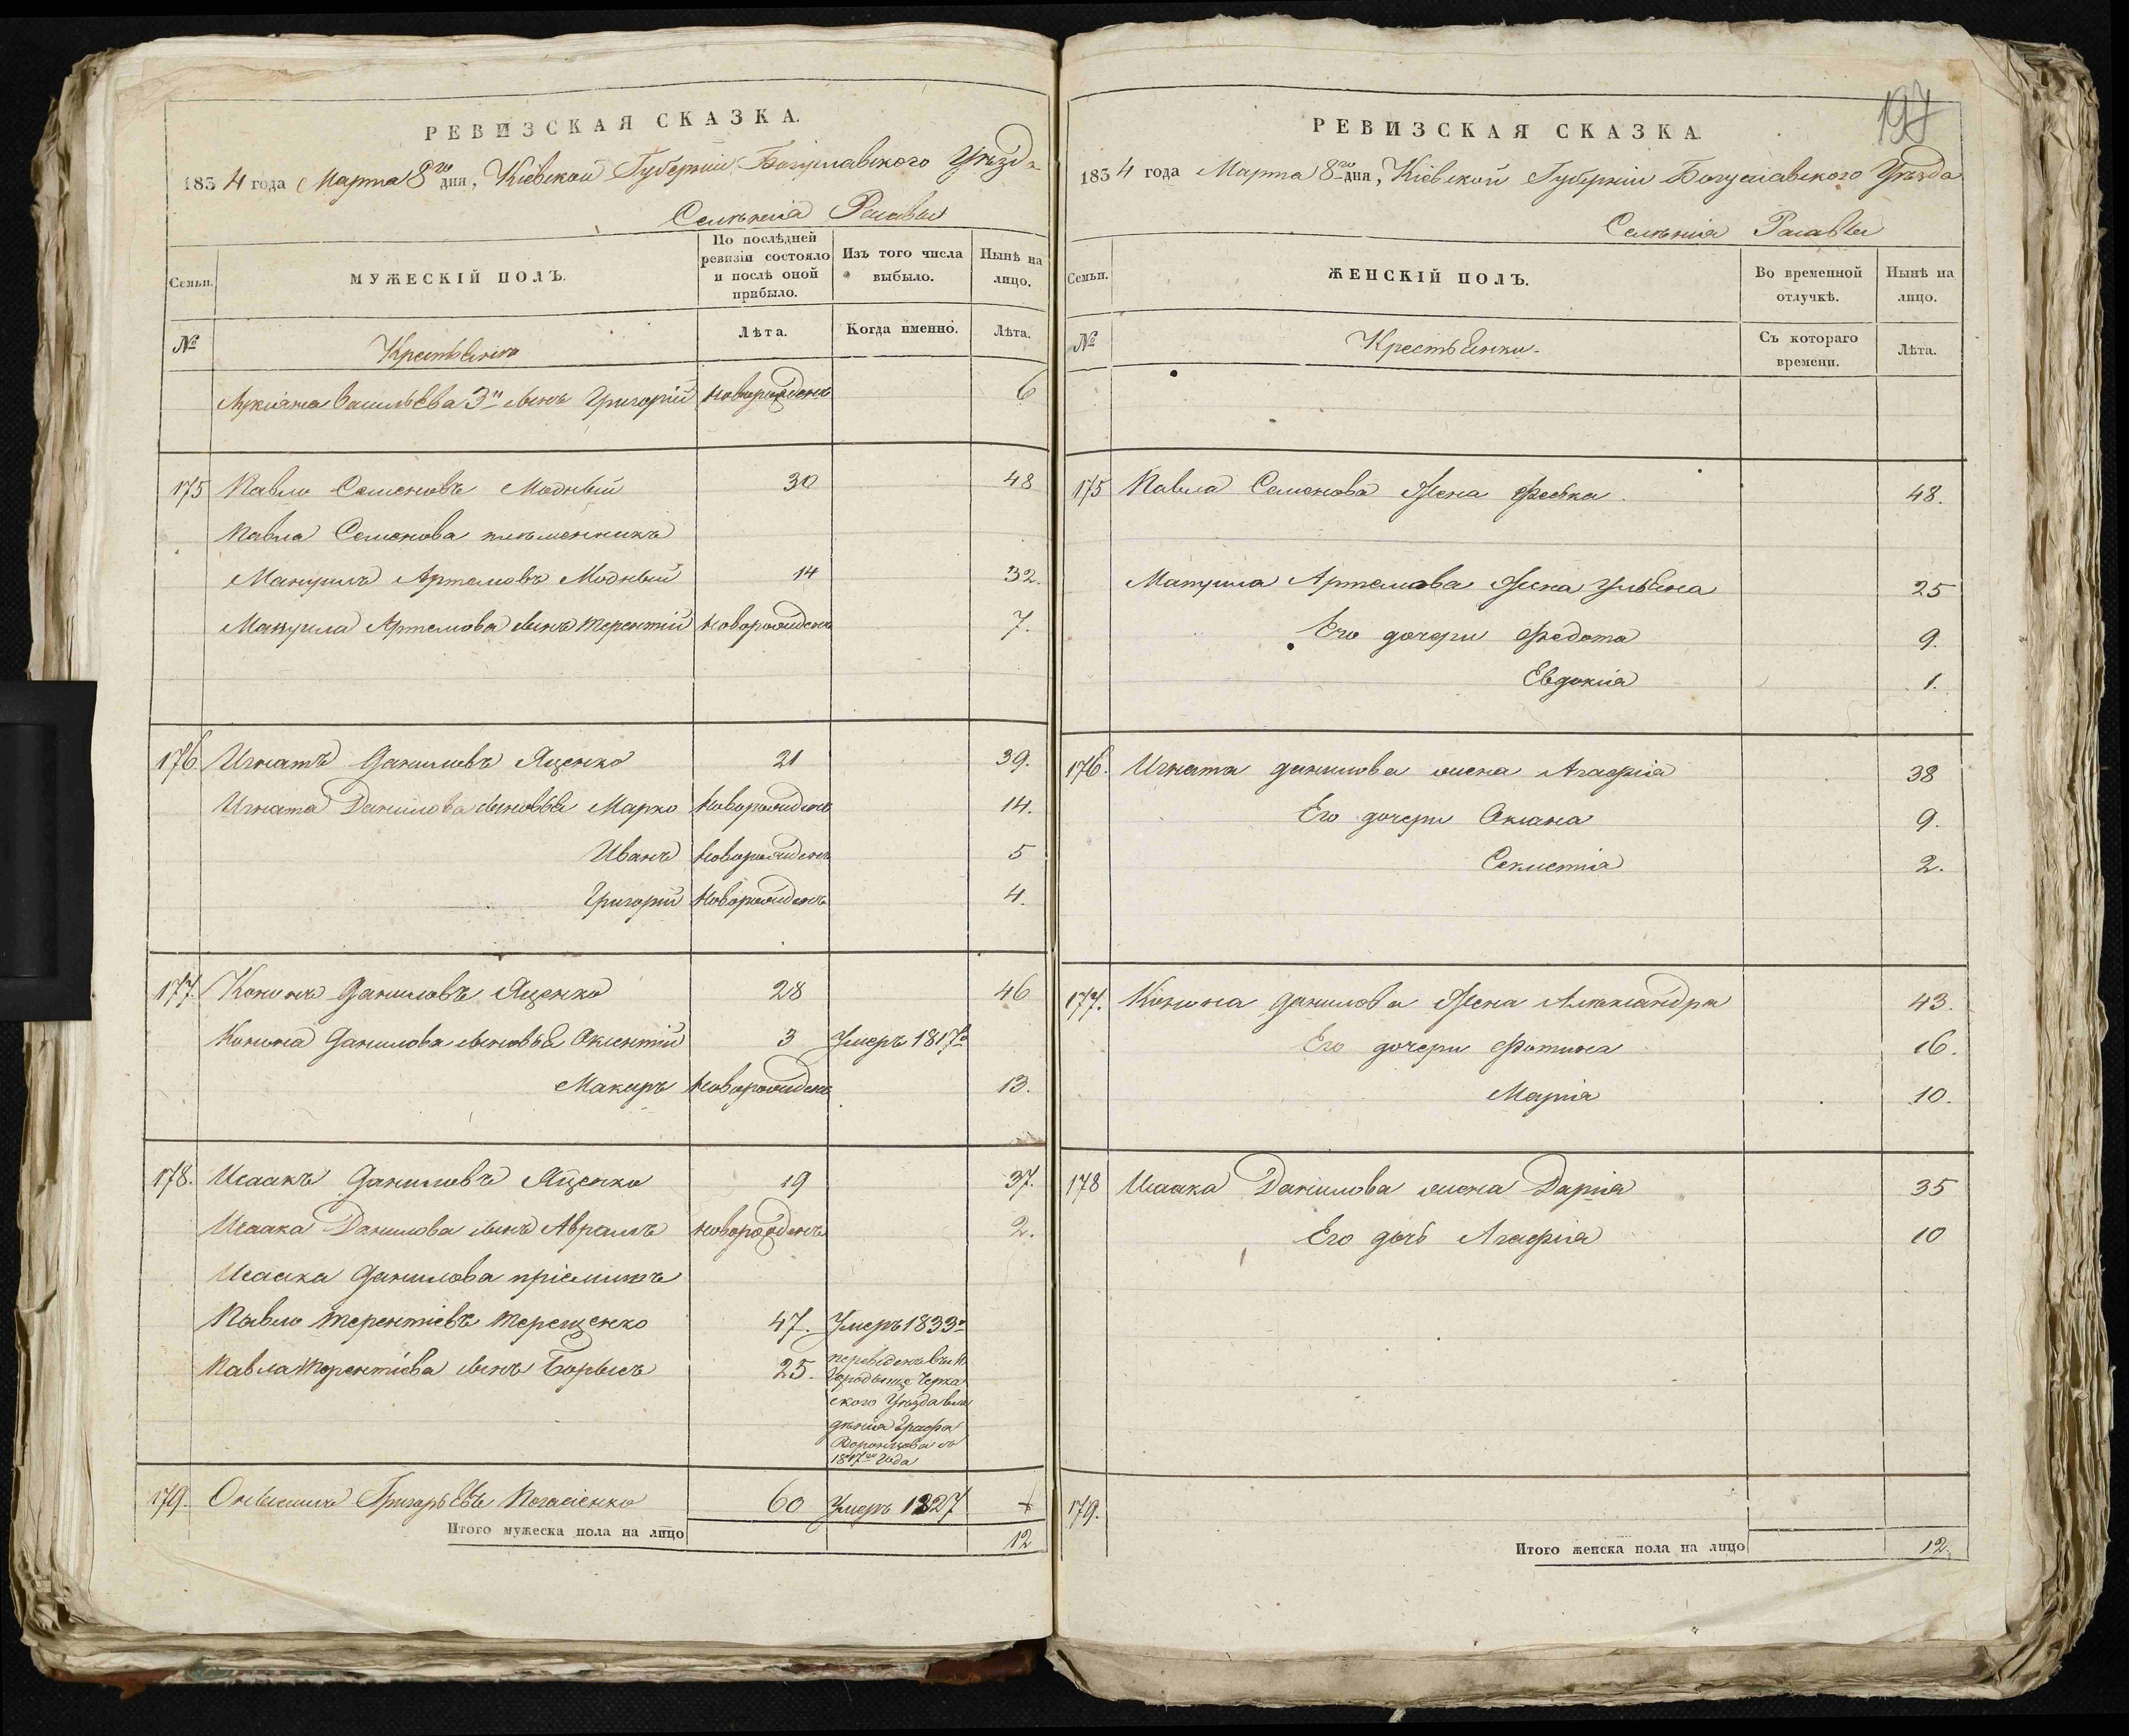 РЕВИЗСКАЯ СКАЗКА.
1834 года Марта 8го дня, Кіевской Губерніи Богуславского Уѣзда
Селенія Расавы
Семьи.
МУЖЕСКІЙ ПОЛЪ.
По послѣдней ревизіи состояло и послѣ оной прибыло.
Изъ того числа выбыло.
Нынѣ на лицо.
№
Крестьяне
Лѣта.
Когда именно.
Лѣта.
Лукіяна Васильева 3й сынъ Григорій новорожденъ 6
175 Павло Семеновъ Модный 30 48
Павла Семенова племянникъ
Мануилъ Артемовъ Модный 14 32.
Мануила Артемова сынъ Терентій новорожденъ 7.
176 Игнатъ Даниловъ Яценко 21 39.
Игната Данилова сыновья Марко новорожденъ 14.
Иванъ новорожденъ 5
Григорій новорожденъ 4.
177. Кононъ Даниловъ Яценко 28 46
Конона Данилова сыновья Оксентій 3 Умеръ 1817го
Макаръ новорожденъ 13.
178. Исаакъ Даниловъ Яценко 19 37.
Исаака Данилова сынъ Аврамъ новорожденъ 2.
Исаака Данилова пріемышъ
Павло Терентіевъ Терещенко 47. Умеръ 1833го
Павла Терентіева сынъ Борысъ 25. переведенъ въ м.
Городыще Черка
ского Уѣзда вла
дѣнія Графа
Воронцова съ
1817го года
179. Онысимъ Григорьевъ 60 Умеръ 1827 +
Итого мужеска пола на лицо 12
197
РЕВИЗСКАЯ СКАЗКА.
1834 года Марта 8го дня, Кіевской Губерніи Богуславского Уѣзда
Селенія Расавы
Семьи.
ЖЕНСКІЙ ПОЛЪ.
Во временной отлучкѣ.
Нынѣ на лицо.
№
Крестьянки.
Съ котораго времени.
Лѣта.
175 Павла Семенова Жена Феська 48.
Мануила Артемова Жена Ульяна 25
Его дочери Федота 9.
Евдокія 1.
176. Игната Данилова жена Агафія 38
Его дочери Оксана 9.
Секлетія 2.
177. Конона Данилова Жена Александра 43.
Его дочери Фотина 16.
Марія 10.
178 Исаака Данилова жена Дарія 35
Его дочь Агафія 10
179.
Итого женска пола на лицо 12.